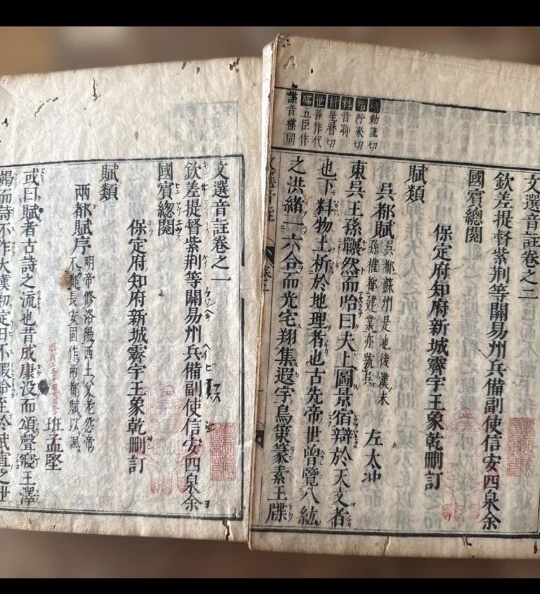 文選音註卷之二
欽差提督紫荆等關易州兵備副使信安四泉余
國賓總閱
保定府知府新城霽宇王象乾刪訂
賦類
吳都賦 吳都蘇州是也後漢末孫權都建業亦號吳 左太冲
東吳王孫囅然而咍曰夫上圖景宿辯於天文者
也下料物土析於地理者也古先帝世曾覽八紘
之洪緒一六合而光宅翔集遐宇鳥策篆素玉牒
文選音註卷之一
欽差提督紫荆等關易州兵備副使信安四泉余
國賓總閱
保定府知府新城霽宇王象乾刪訂
賦類
兩都賦序 明帝修洛陽西土父老怨帝不都長安固作兩都賦以諷
班孟堅
或曰賦者古詩之流也昔成康没而頌聲寢王澤
竭而詩不作大漢初定日不暇給至於武宣之世